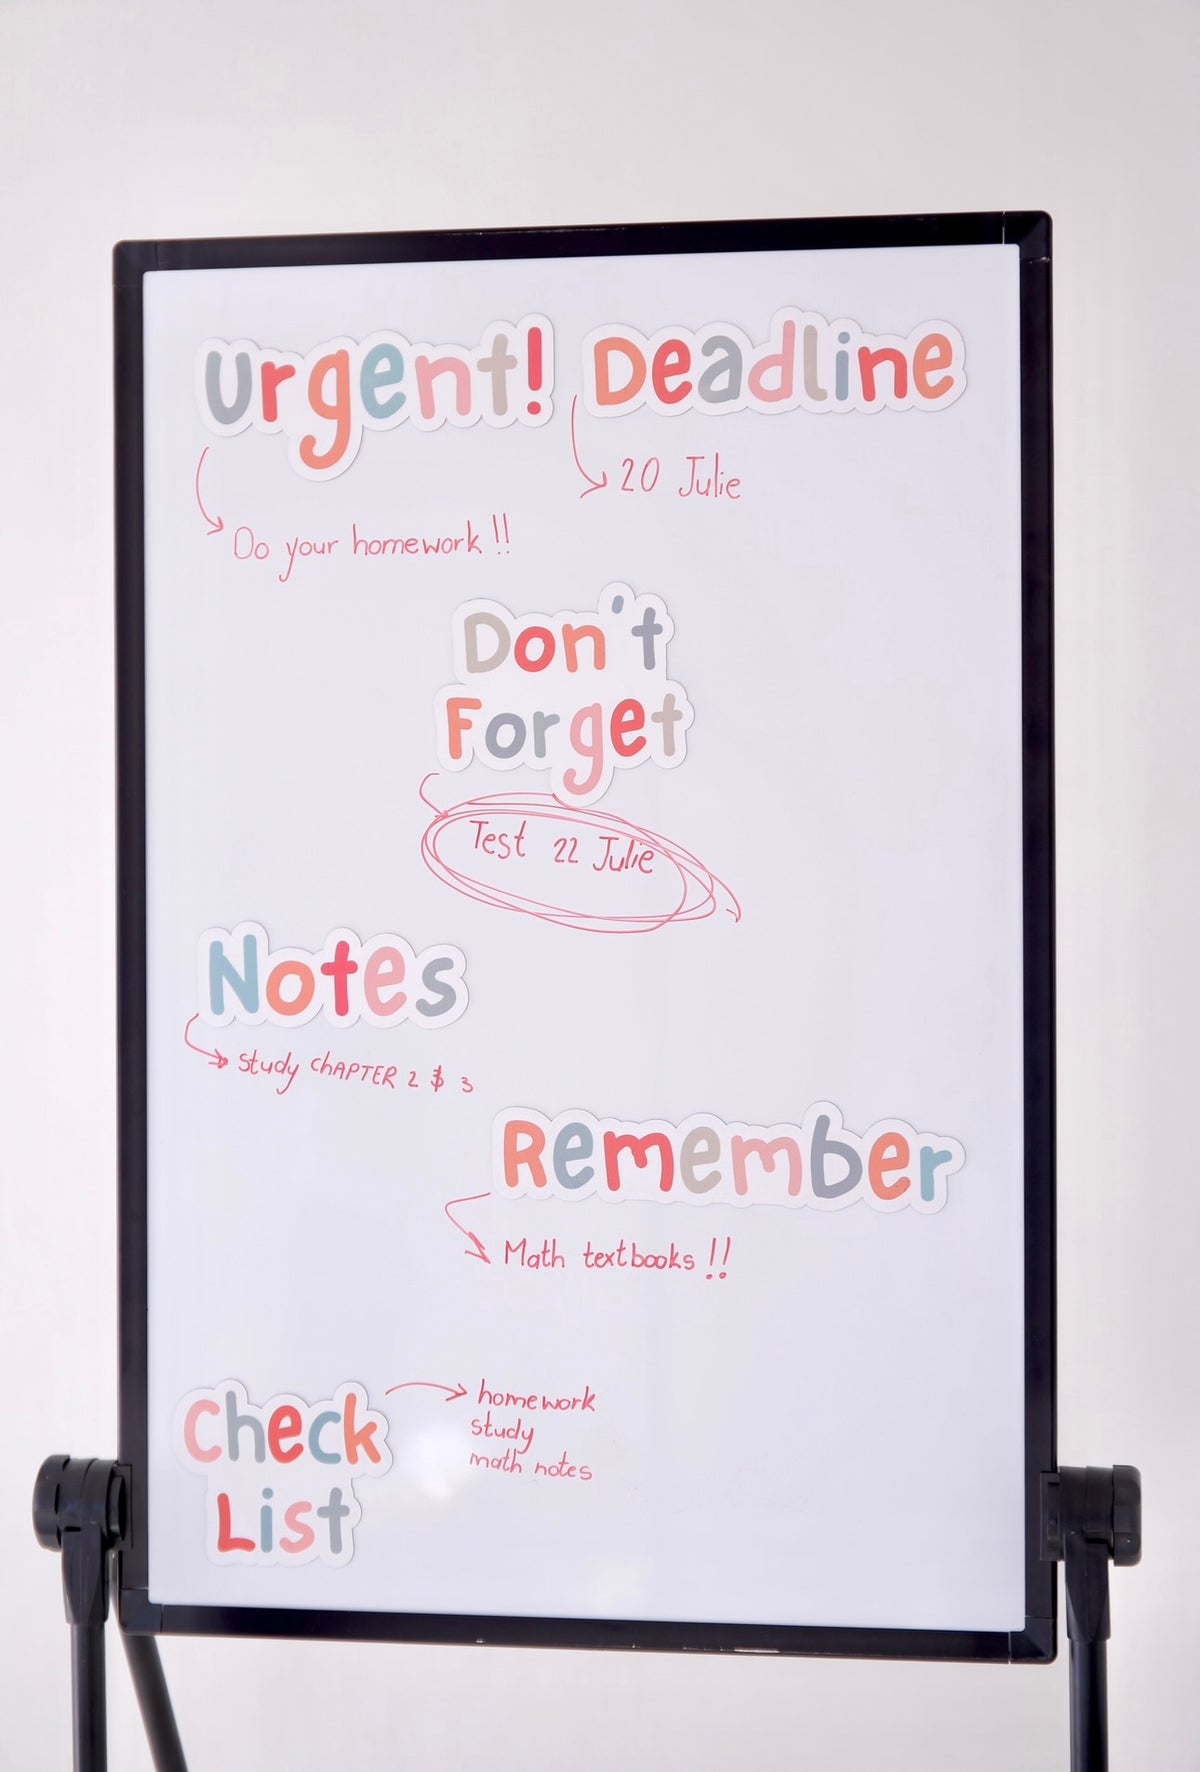 Urgent! Deadline
20 Julie
Do your homework!!
Don't
Forget
Test 22 Julie
Notes
study chAPTER 2 & 3
Remember
Math textbooks!!
Check
List
homework
study
math notes